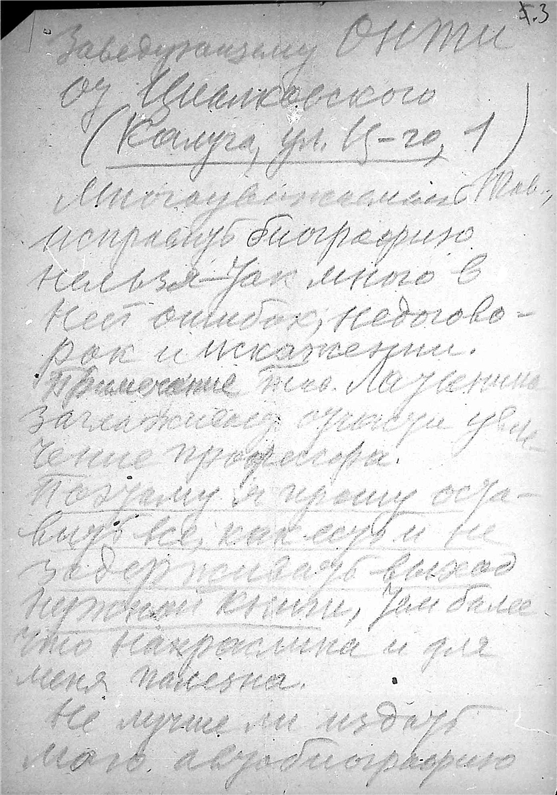 I.3
Заведующему ОНТИ
от Циолковского
(Калуга, ул. Ц-го, 1)
Многоуважаемый Тов.,
исправить биографию
нельзя – так много в
ней ошибок, недогово-
рок и искажений.
Примечание тов. Лапкина
заглаживает отчасти увле-
чение профессора.
Поэтому я прошу оста-
вить все, как есть и не
задерживать выход
нужной книги, тем более
что накраслина и для
меня полезна.
Не лучше ли издать
мою автобиографию